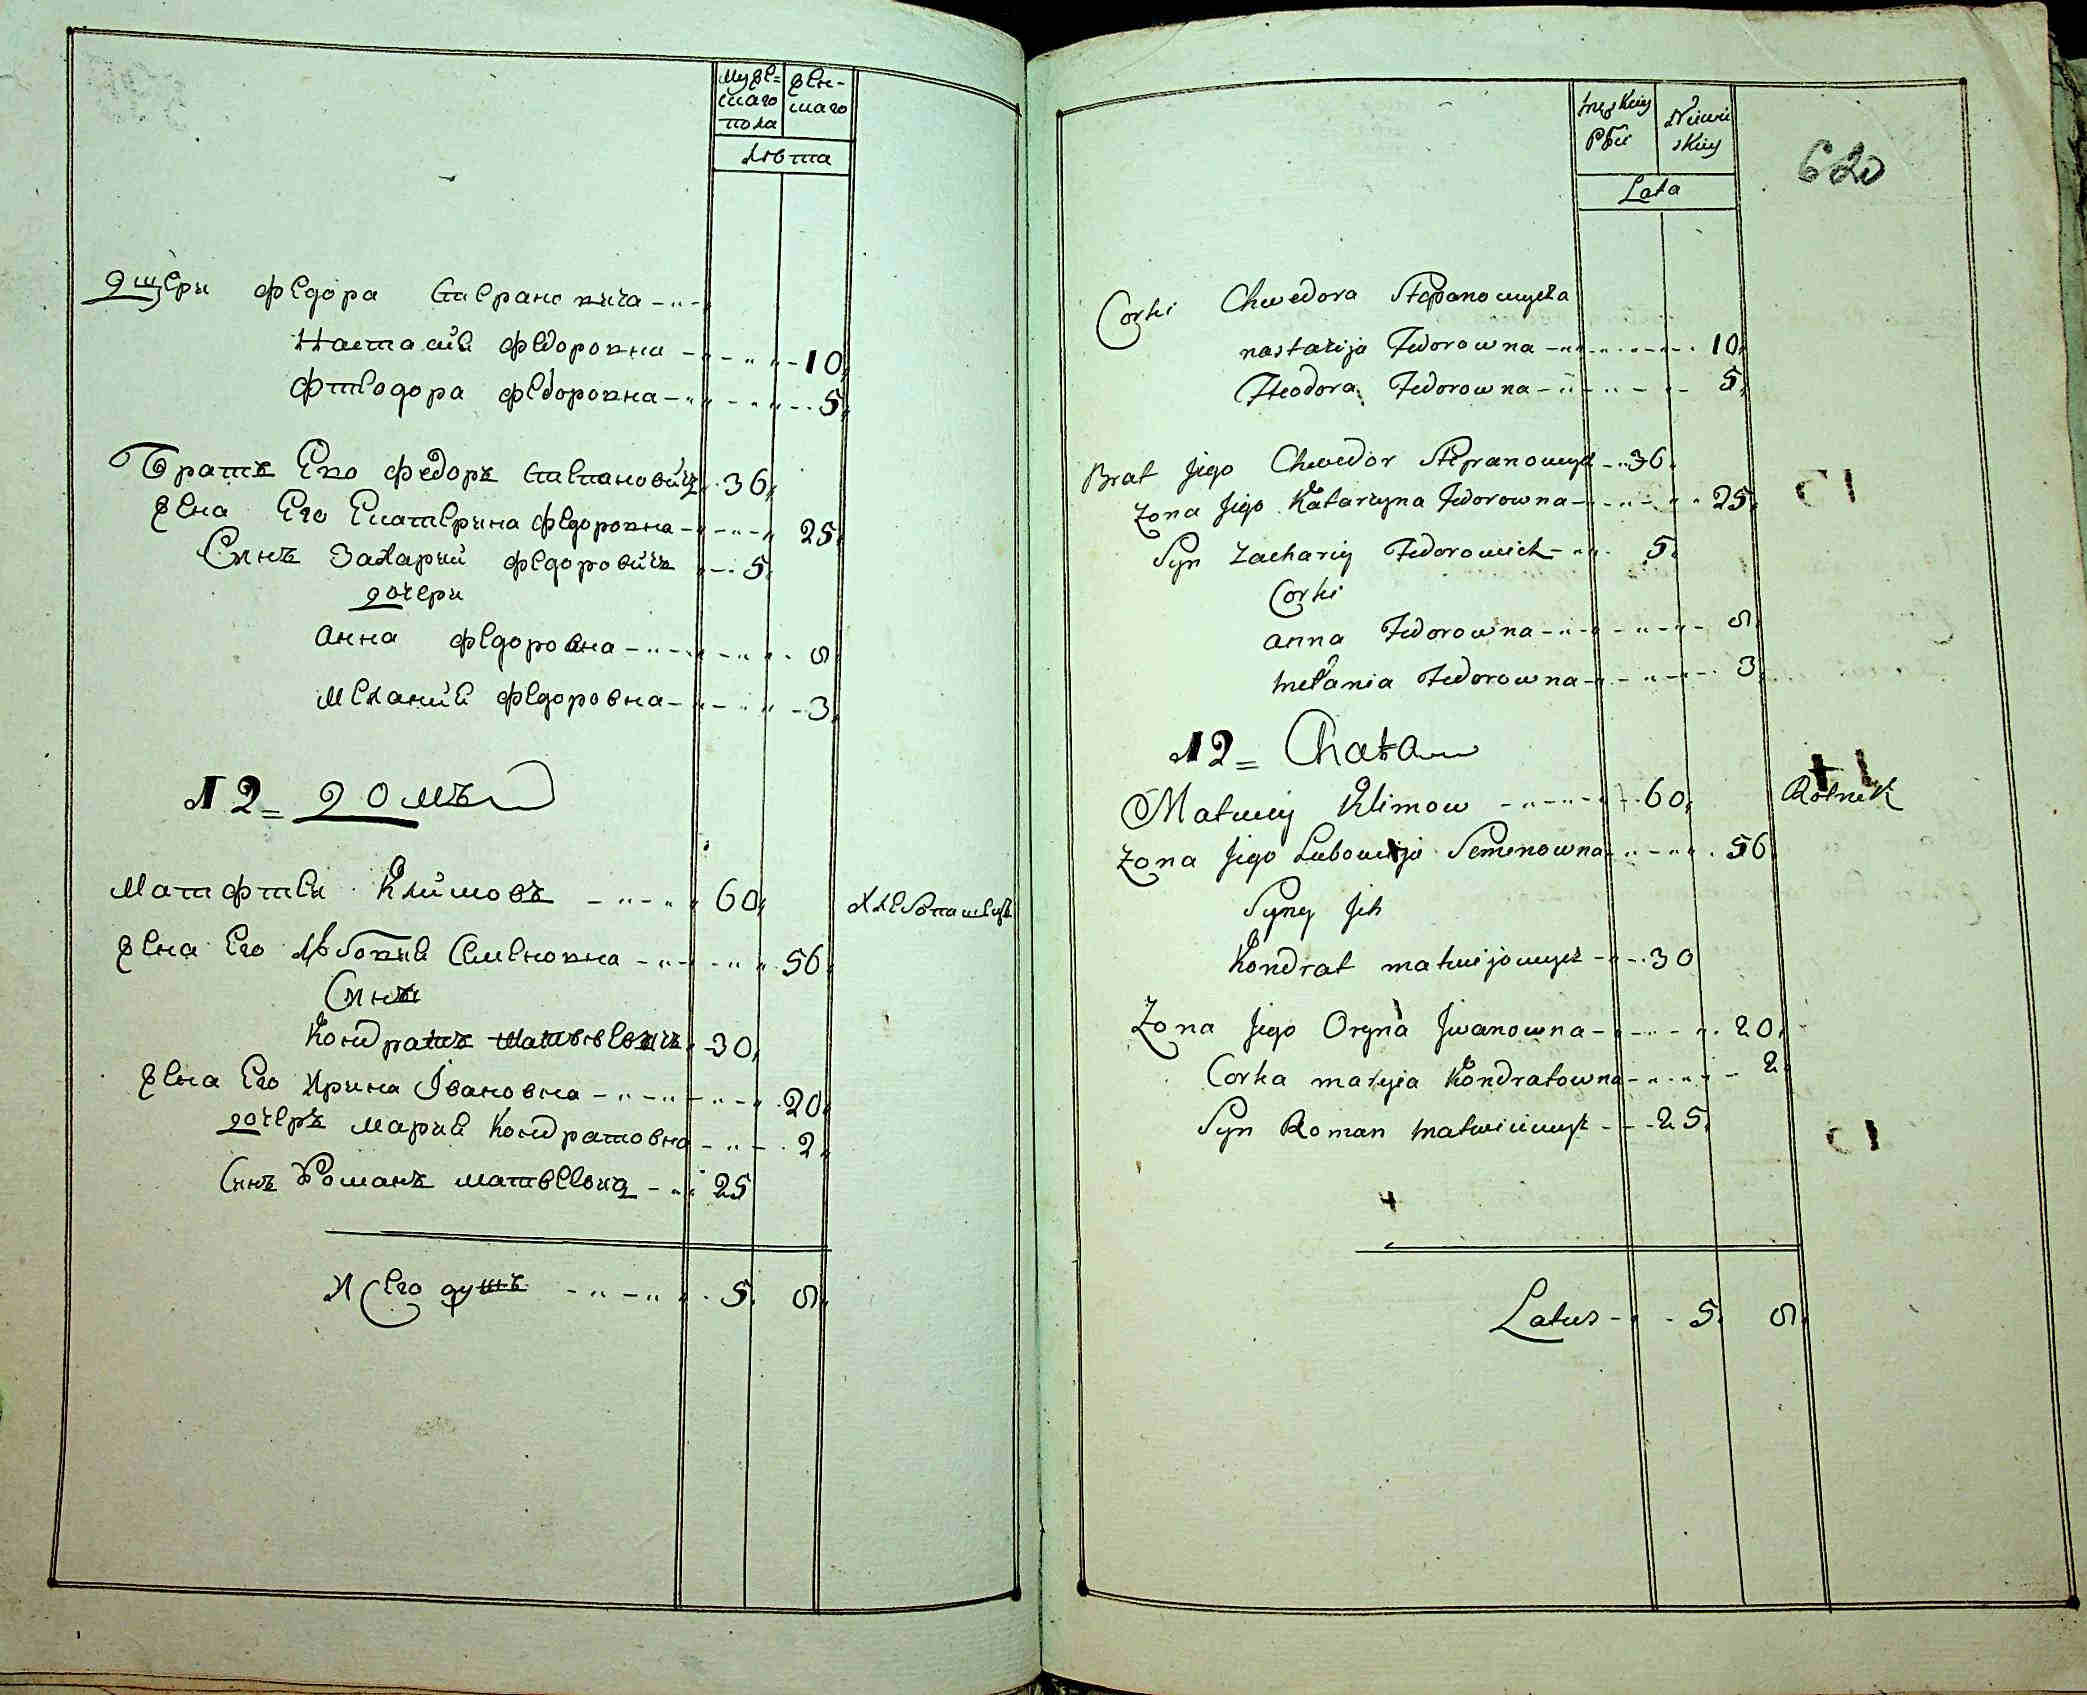 муже-
скаго
пола
жен-
скаго
лѣта
дщери Федора Степановича
Настасия Федоровна 10
Фтеодора Федоровна 5
Братъ Его Федоръ Степановичъ 36
Жена Его Екатерина Федоровна 25
Сынъ Захарий Федоровичъ 5
дочери
Анна Федоровна 8
Мелания Федоровна 3
N 2 = домъ
Матфтей Климовъ 60 хлебопашецъ
Жена Его Любовия Семеновна 56
Сынъ
Кондратъ Матвеевичъ 30
Жена Его Ирина Івановна 20
дочеръ Мария Кондратовна 2
Сынъ Романъ Матвеевич 25
Всего душъ 5 8
męzkiey
Płci
Niewie
skiey
Lata
620
Corki Chwedora Stepanowycza
nastazija Fedorowna 10
Fteodora Fedorowna 5
Brat Jego Chwedor Stepranowycz 36
Zona Jego Katarzyna Fedorowna 25
Syn Zachariy Fedorowicz 5
Corki
anna Fedorowna 8
mełania Fedorowna 3
N 2 = Chata
Matwiey Klimow 60 Rolnik
Zona Jego Lubowija Semenowna 56
Syny Jch
Kondrat matwijowycz 30
Zona Jego Oryna Jwanowna 20
Corka maryia Kondratowna 2
Syn Roman matwieiewycz 25
Latus 5 8